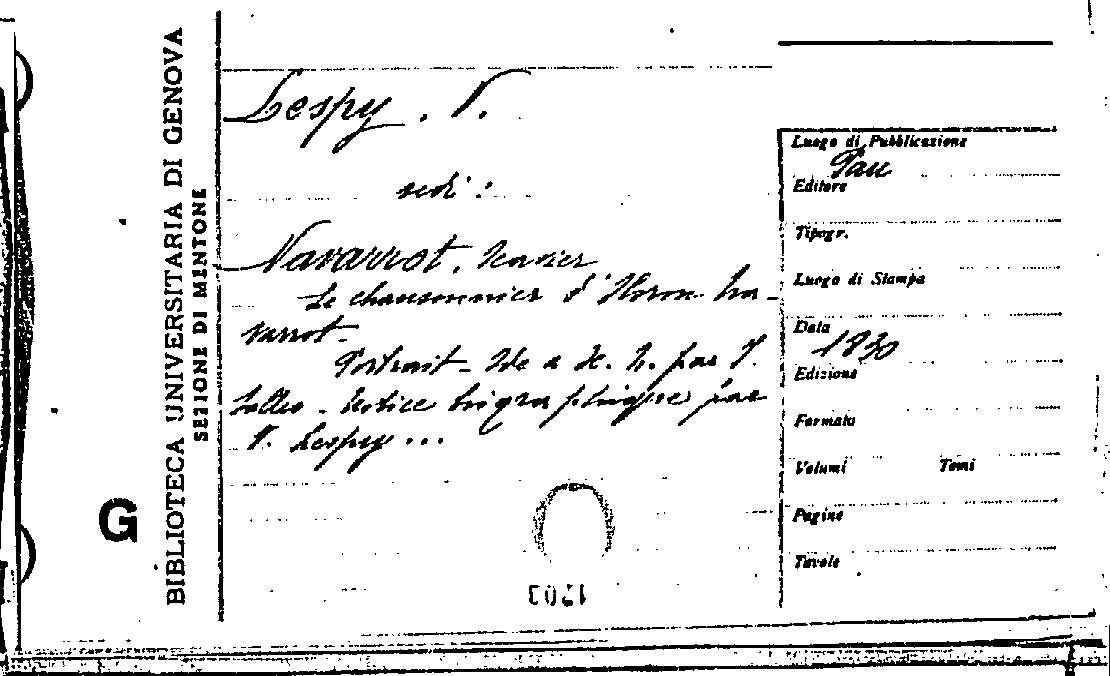 BIBLIOTECA UNIVERSITARIA DI GENOVA
SEZIONE DI MENTONE
G
Lespy. V.
vedi:
Navarrot, Xavier
Le chansonnier d'Oloron. Na-
varrot-
Portrait- de X. N. par J.
Notice biographique par
V. Lespy...
Luogo di Pubblicazione
Pau
Editore
Tipogr.
Luogo di Stampa
Data
1890
Edizione
Formato
Volumi Tomi
Pagine
Tavole